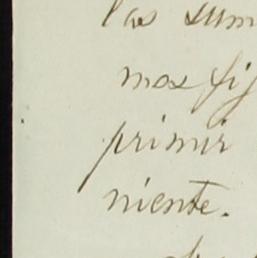 las sum
mos fij
primir
niente.